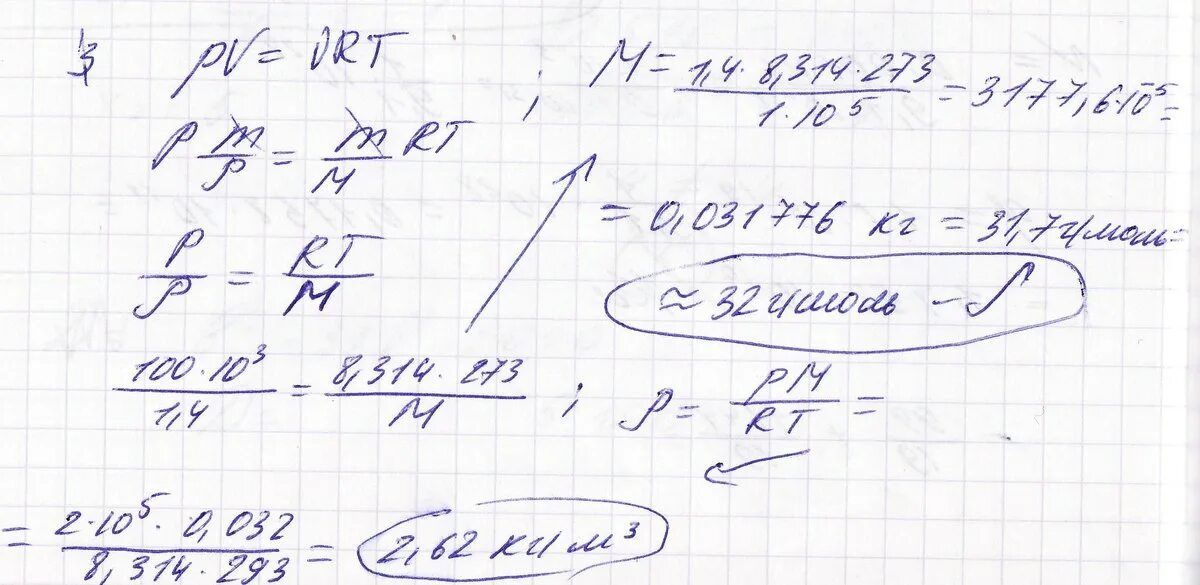 3
pV = νRT
P m/ρ = m/M RT
P/ρ = RT/M
100·10³/1,4 = 8,314·273/M ;
; M = 1,4·8,314·273/1·10⁵ = 3177,6·10⁻⁵ =
= 0,031776 кг = 31,7 г/моль =
≈ 32 г/моль –
ρ = PM/RT =
= 2·10⁵·0,032/8,314·293 = 2,62 кг/м³